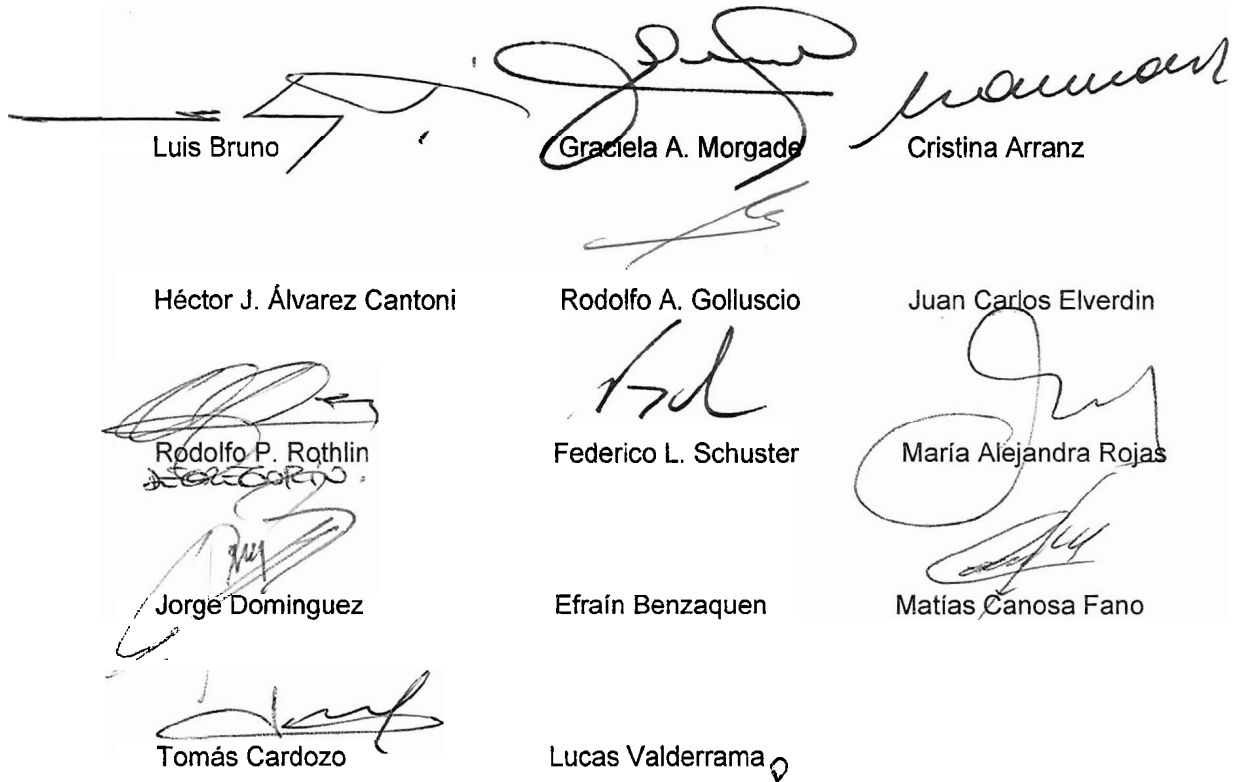 Luis Bruno Graciela A. Morgade Cristina Arranz
Héctor J. Álvarez Cantoni Rodolfo A. Golluscio Juan Carlos Elverdin
Rodolfo P. Rothlin Federico L. Schuster María Alejandra Rojas
Jorge Dominguez Efraín Benzaquen Matías Canosa Fano
Tomás Cardozo Lucas Valderrama